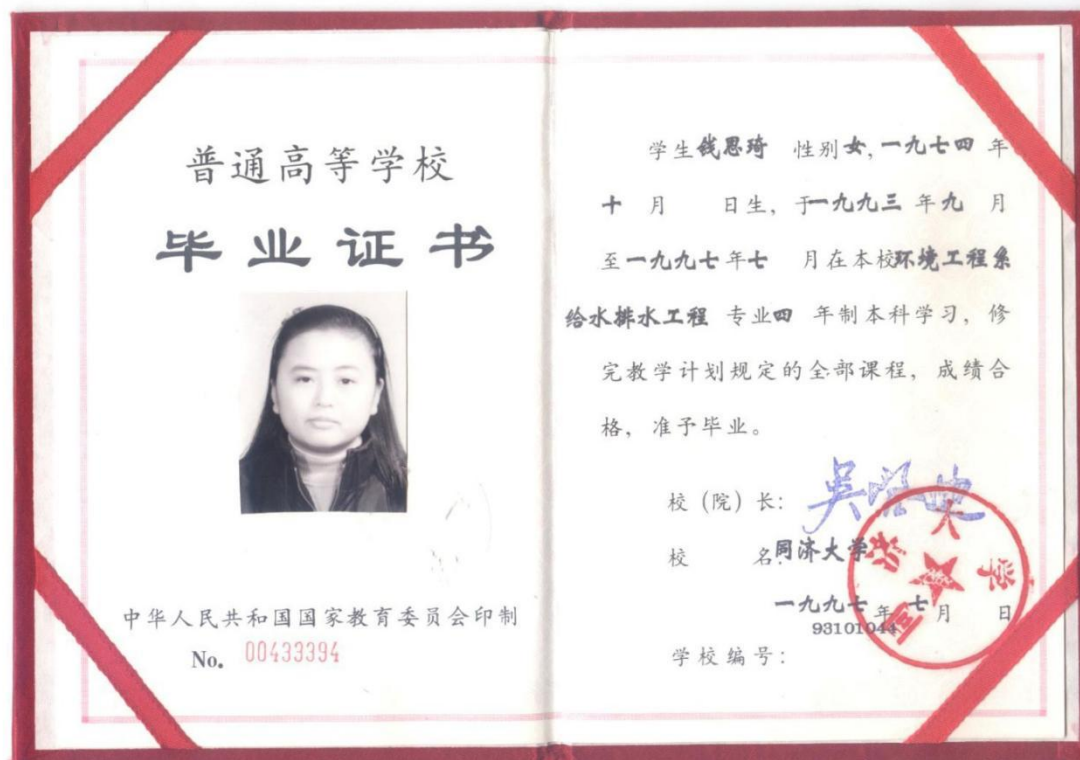 普通高等学校
毕业证书
中华人民共和国国家教育委员会印制
No. 00433394
学生钱思琦 性别女,一九七四年
十月 日生,于一九九三年九月
至一九九七年七月在本校环境工程系
给水排水工程 专业四 年制本科学习,修
完教学计划规定的全部课程,成绩合
格,准予毕业。
校(院)长:吴启迪
校 名:同济大学
同济大学
一九九七年七月 日
93101044
学校编号: